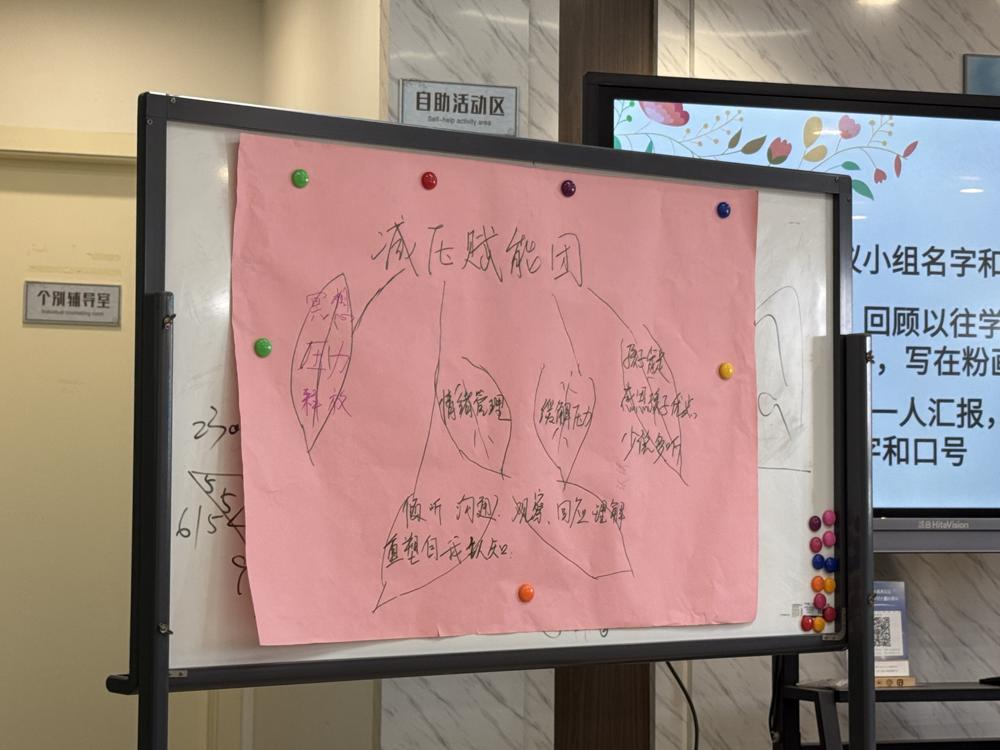 自助活动区
Self-help activity area
个别辅导室
Individual counseling room
减压赋能团
冥想
压力
释放
情绪管理
缓解压力
孩子
感恩孩子优点
少说多听
倾听 问题? 观察、回应 理解
重塑自我认知.
230
55
615
小组名字和
回顾以往学
,写在粉画
一人汇报,
字和口号
HiteVision